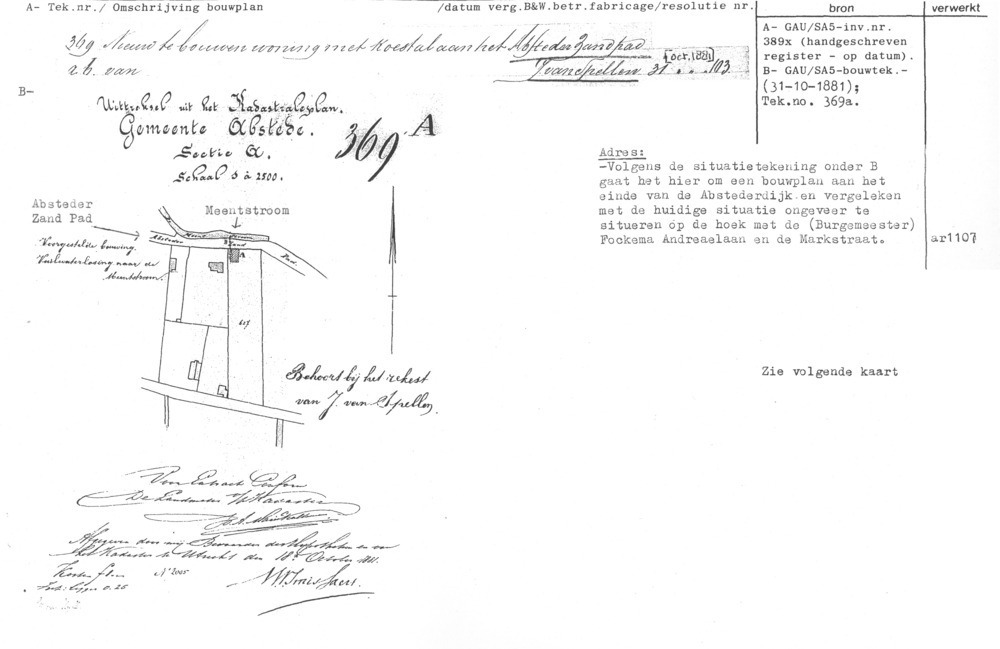 A- Tek.nr./ Omschrijving bouwplan /datum verg.B&W.betr.fabricage/resolutie nr. bron verwerkt
369 Nieuw te bouwen woning met koestal aan het Absteder Zandpad
z b. van J van Spellen 31 oct. 1881 103
A- GAU/SA5-inv.nr.
389x (handgeschreven
register - op datum).
B- GAU/SA5-bouwtek.-
(31-10-1881);
Tek.no. 369a.
B-
Uittreksel uit het Kadastrale plan.
Gemeente Abstede.
Sectie A.
Schaal 1 à 2500.
369 A
Adres:
-Volgens de situatietekening onder B
gaat het hier om een bouwplan aan het
einde van de Abstederdijk en vergeleken
met de huidige situatie ongeveer te
situeren op de hoek met de (Burgemeester)
Fockema Andreaelaan en de Markstraat.
ar1107
Absteder
Zand Pad
Meentstroom
Absteder Zand Pad.
Meent stroom
Voorgestelde bouwing.
Vuilwaterlosing naar de
Meentstroom.
A
617
Behoort bij het rekest
van J. van Spellen.
Zie volgende kaart
Voor Extract Conform
De Landmeter v/h Kadaster
Afgegeven door mij Bewaarder der Hypotheken en van
het Kadaster te Utrecht den 18 October 1881.
Kosten
N° 2005
0.25